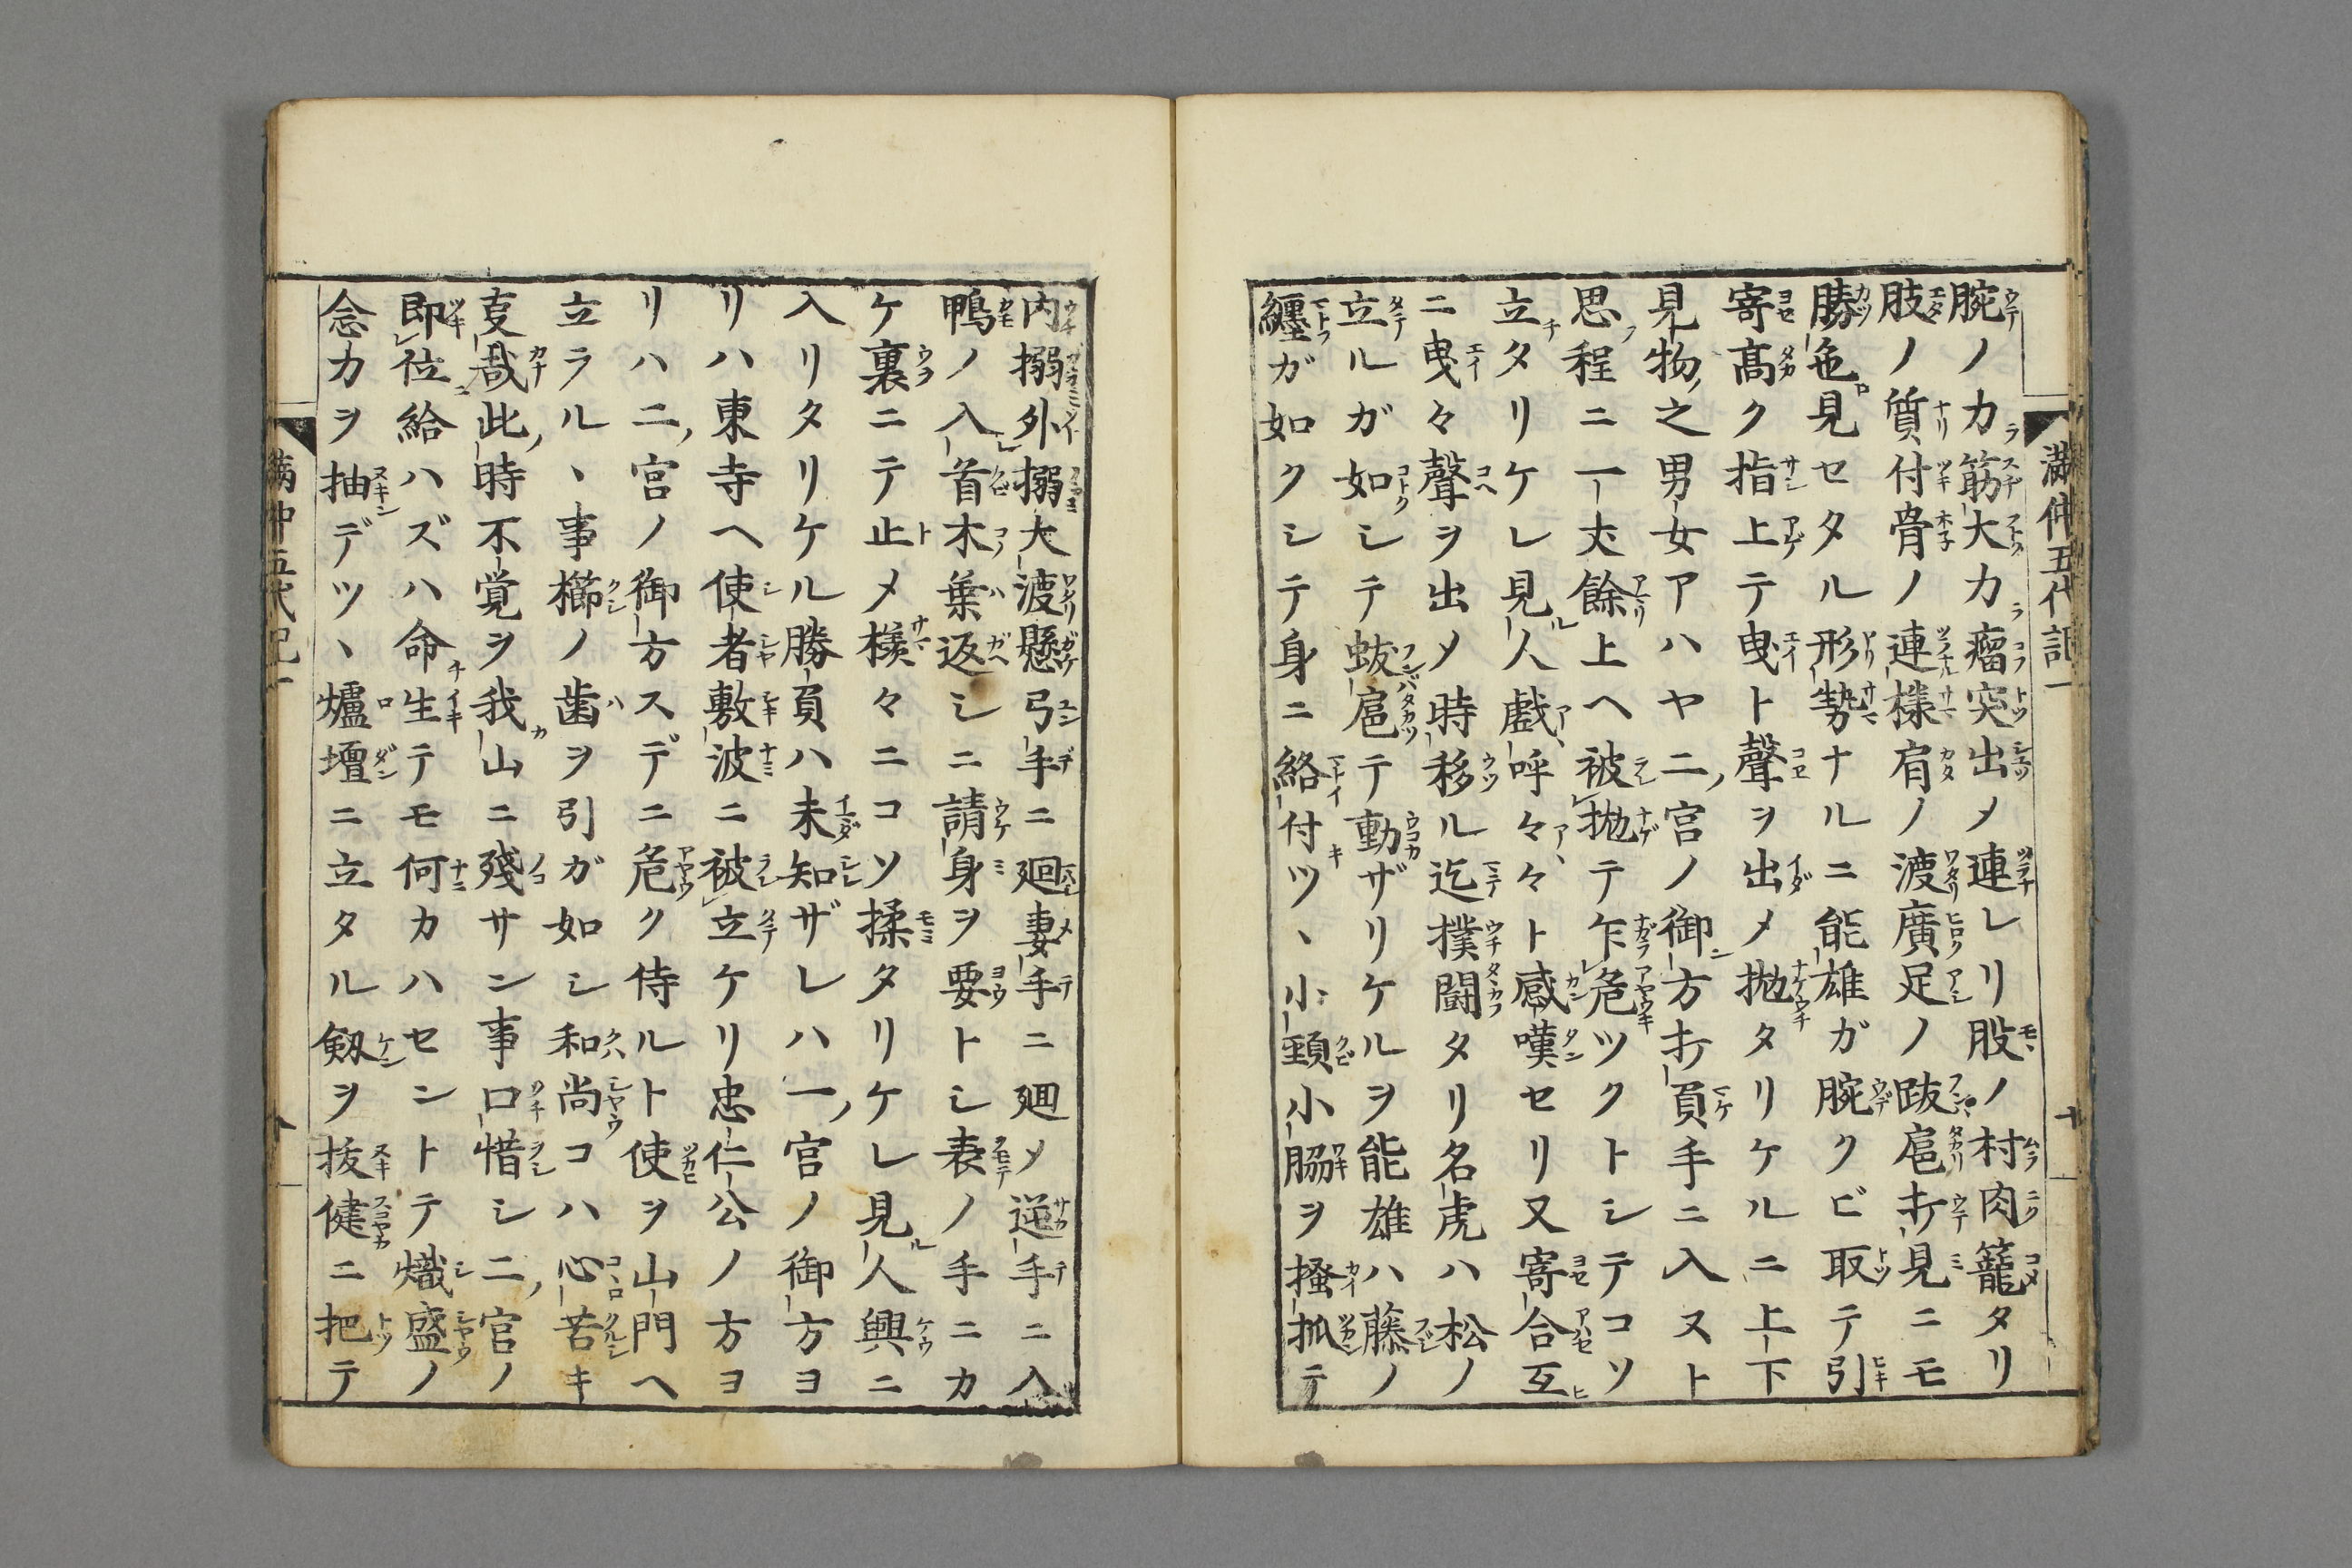 腕ノカ筋大カ瘤突出メ連レリ股ノ村肉籠タリ
肢ノ質付骨ノ連様肩ノ渡廣足ノ跋扈打見ニモ
勝色見セタル形勢ナルニ能雄ガ腕クビ取テ引
寄髙ク指上テ曳ト聲ヲ出メ抛タリケルニ上下
見物之男女アハヤ二宮ノ御方打負手ニ入ヌト
思程ニ一丈餘上ヘ被抛テ乍危ツクトシテコソ
立タリケレ見人戯呼々々ト感嘆セリ又寄合互
ニ曳々聲ヲ出メ時移ル迄撲闘タリ名虎ハ松ノ
立ルガ如シテ蚑扈テ動ザリケルヲ能雄ハ藤ノ
纒ガ如クシテ身ニ絡付ツヽ小頸小脇ヲ搔抓テ
満仲五代記一
十
内搦外搦大渡懸弓手ニ廻妻手ニ廻メ逆手ニ入
鴨ノ入首木葉返シニ請身ヲ要トシ表ノ手ニカ
ケ裏ニテ止メ様々ニコソ揉タリケレ見人興ニ
入リタリケル勝負ハ未知ザレハ一宮ノ御方ヨ
リハ東寺ヘ使者敷波ニ被立ケリ忠仁公ノ方ヨ
リハ二宮ノ御方スデニ危ク侍ルト使ヲ山門ヘ
立ラルヽ事櫛ノ歯ヲ引ガ如シ和尚コハ心苦キ
㕝哉此時不覚ヲ我山ニ殘サン事口惜シ二宮ノ
即位給ハズハ命生テモ何カハセントテ熾盛ノ
念カヲ抽デツヽ爐壇ニ立タル剱ヲ抜健ニ把テ
満仲五代記一